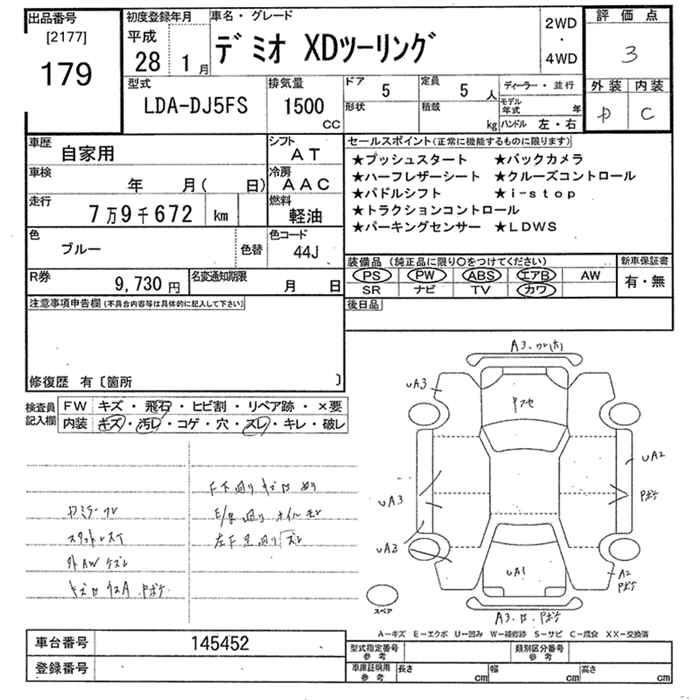 出品番号
[2177]
179
初度登録年月
平成
28 1月
車名・グレード
デミオ XDツーリング
2WD
・
4WD
評価点
3
外装 内装
D C
型式
LDA-DJ5FS
排気量
1500
CC
ドア 5
定員 5 人
ディーラー・並行
形状
積載 kg
モデル年式 年
ハンドル 左・右
車歴
自家用
シフト
AT
車検
年 月( 日)
冷房
AAC
走行
7万9千672 km
燃料
軽油
色
ブルー
色替
色コード
44J
R券
9,730円
名変通知期限
月 日
セールスポイント(正常に機能するものに限ります)
★プッシュスタート ★バックカメラ
★ハーフレザーシート ★クルーズコントロール
★パドルシフト ★i-stop
★トラクションコントロール
★パーキングセンサー ★LDWS
装備品(純正品に限り○をつけてください)
PS PW ABS エアB AW
SR ナビ TV カワ
新車保証書
有・無
後日品
注意事項申告欄(不具合内容等は具体的に記入して下さい)
修復歴 有〔箇所 〕
検査員記入欄
FW キズ・飛石・ヒビ割・リペア跡・×要
内装 キズ・汚レ・コゲ・穴・スレ・キレ・破レ
外AWケズレ
uA3
uA3
uA3
uA2
uA1
A2
スペア
A-キズ E-エクボ U-凹み W-補修跡 S-サビ C-腐食 XX-交換済
車台番号
145452
登録番号
型式指定番号
参考
類別区分番号
参考
車庫証明用
参考
長さ cm
幅 cm
高さ cm